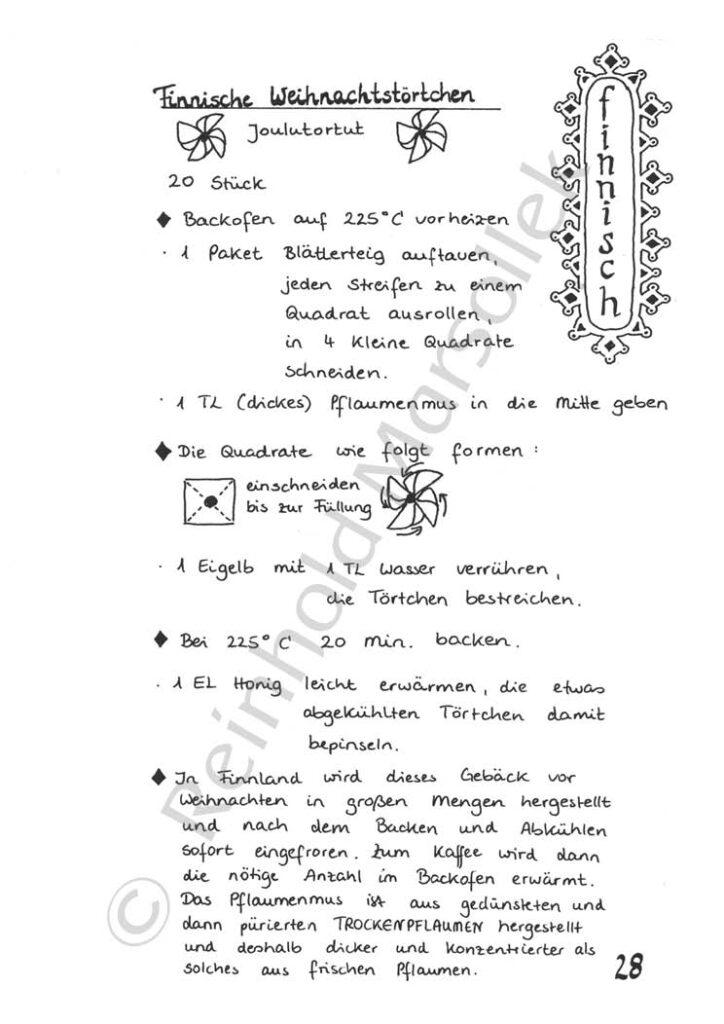 Finnische Weihnachtstörtchen
Joulutortut
finnisch
20 Stück
◆ Backofen auf 225°C vorheizen
· 1 Paket Blätterteig auftauen,
jeden Streifen zu einem
Quadrat ausrollen,
in 4 kleine Quadrate
schneiden.
· 1 TL (dickes) Pflaumenmus in die Mitte geben
◆ Die Quadrate wie folgt formen:
einschneiden
bis zur Füllung
· 1 Eigelb mit 1 TL Wasser verrühren,
die Törtchen bestreichen.
◆ Bei 225°C 20 min. backen.
· 1 EL Honig leicht erwärmen, die etwas
abgekühlten Törtchen damit
bepinseln.
◆ In Finnland wird dieses Gebäck vor
Weihnachten in großen Mengen hergestellt
und nach dem Backen und Abkühlen
sofort eingefroren. Zum Kaffee wird dann
die nötige Anzahl im Backofen erwärmt.
Das Pflaumenmus ist aus gedünsteten und
dann pürierten TROCKENPFLAUMEN hergestellt
und deshalb dicker und konzentrierter als
solches aus frischen Pflaumen.
28
© Reinhold Marsollek